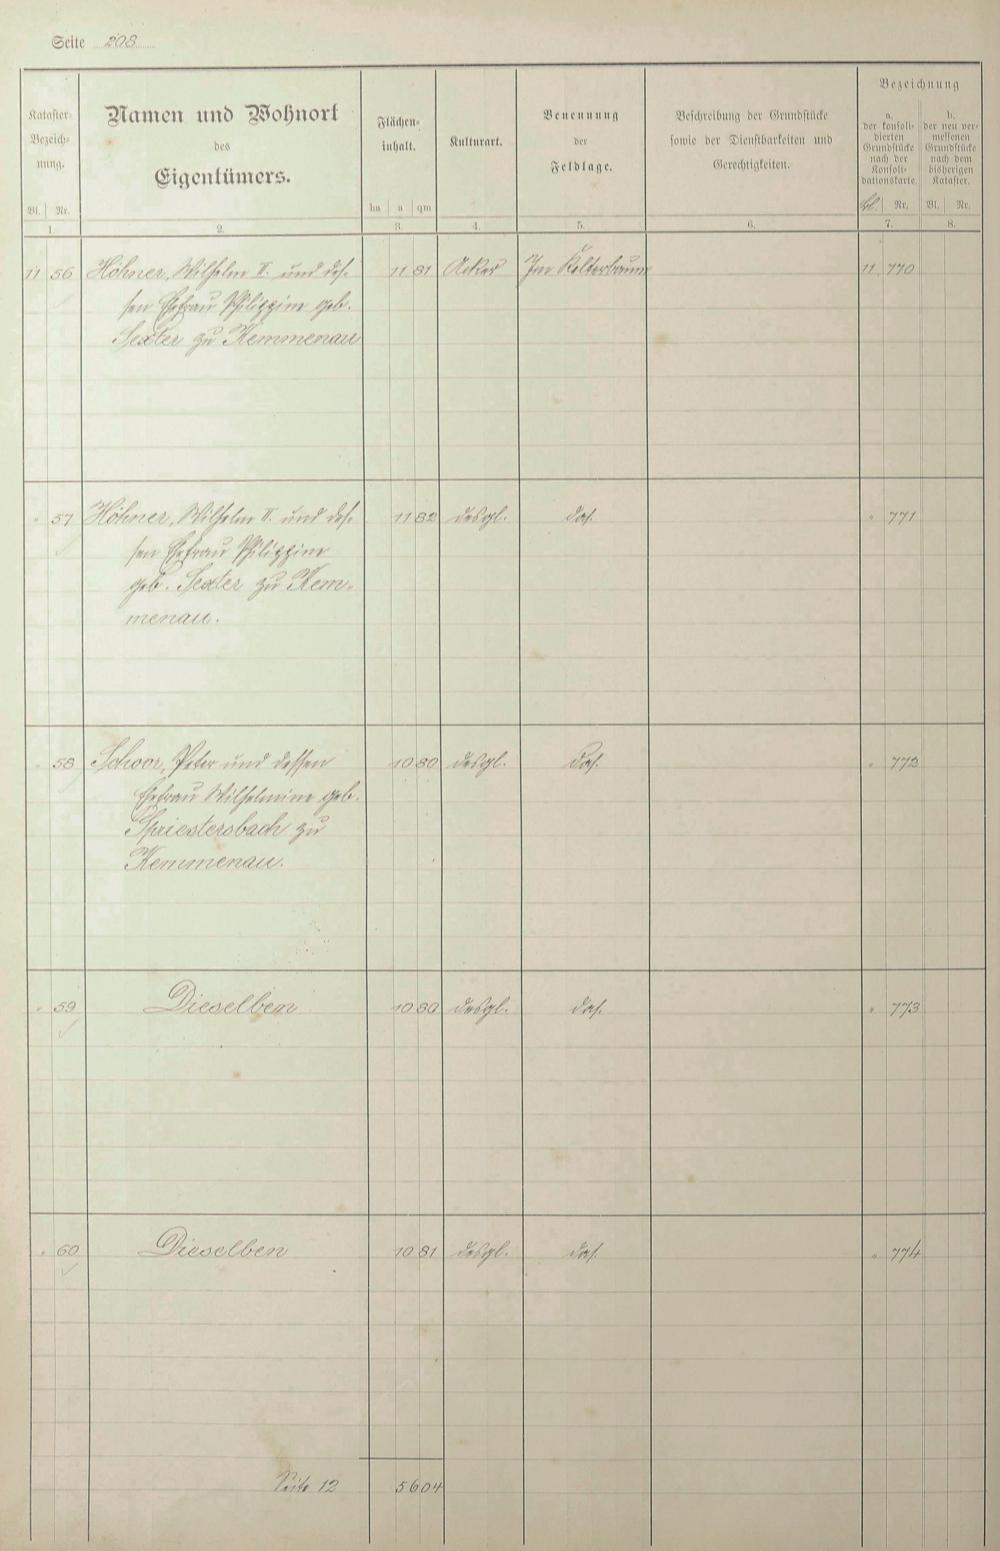 Seite 208
Kataster-
Bezeich-
nung.
Bl. Nr.
Namen und Wohnort
des
Eigentümers.
Flächen-
inhalt.
ha a qm
Kulturart.
Benennung
der
Feldlage.
Beschreibung der Grundstücke
sowie der Dienstbarkeiten und
Gerechtigkeiten.
Bezeichnung
a.
der konsoli-
dierten
Grundstücke
nach der
Konsoli-
dationskarte.
Bl. Nr.
b.
der neu ver-
messenen
Grundstücke
nach dem
bisherigen
Kataster.
Bl. Nr.
1. 2. 3. 4. 5. 6. 7. 8.
11 56 Höhner, Wilhelm II. und des- 11 81 Acker Im Kelterbaum 11 770
sen Ehefrau Philippine geb.
Sexter zu Kemmenau
" 57 Höhner, Wilhelm II. und des- 11 82 desgl. das. " 771
sen Ehefrau Philippine
geb. Sexter zu Kem-
menau.
" 58 Schoor, Peter und dessen 10 80 desgl. das. " 772
Ehefrau Wilhelmine geb.
Spriestersbach zu
Kemmenau.
" 59 Dieselben 10 80 desgl. das. " 773
" 60 Dieselben 10 81 desgl. das. " 774
Seite 12 56 04